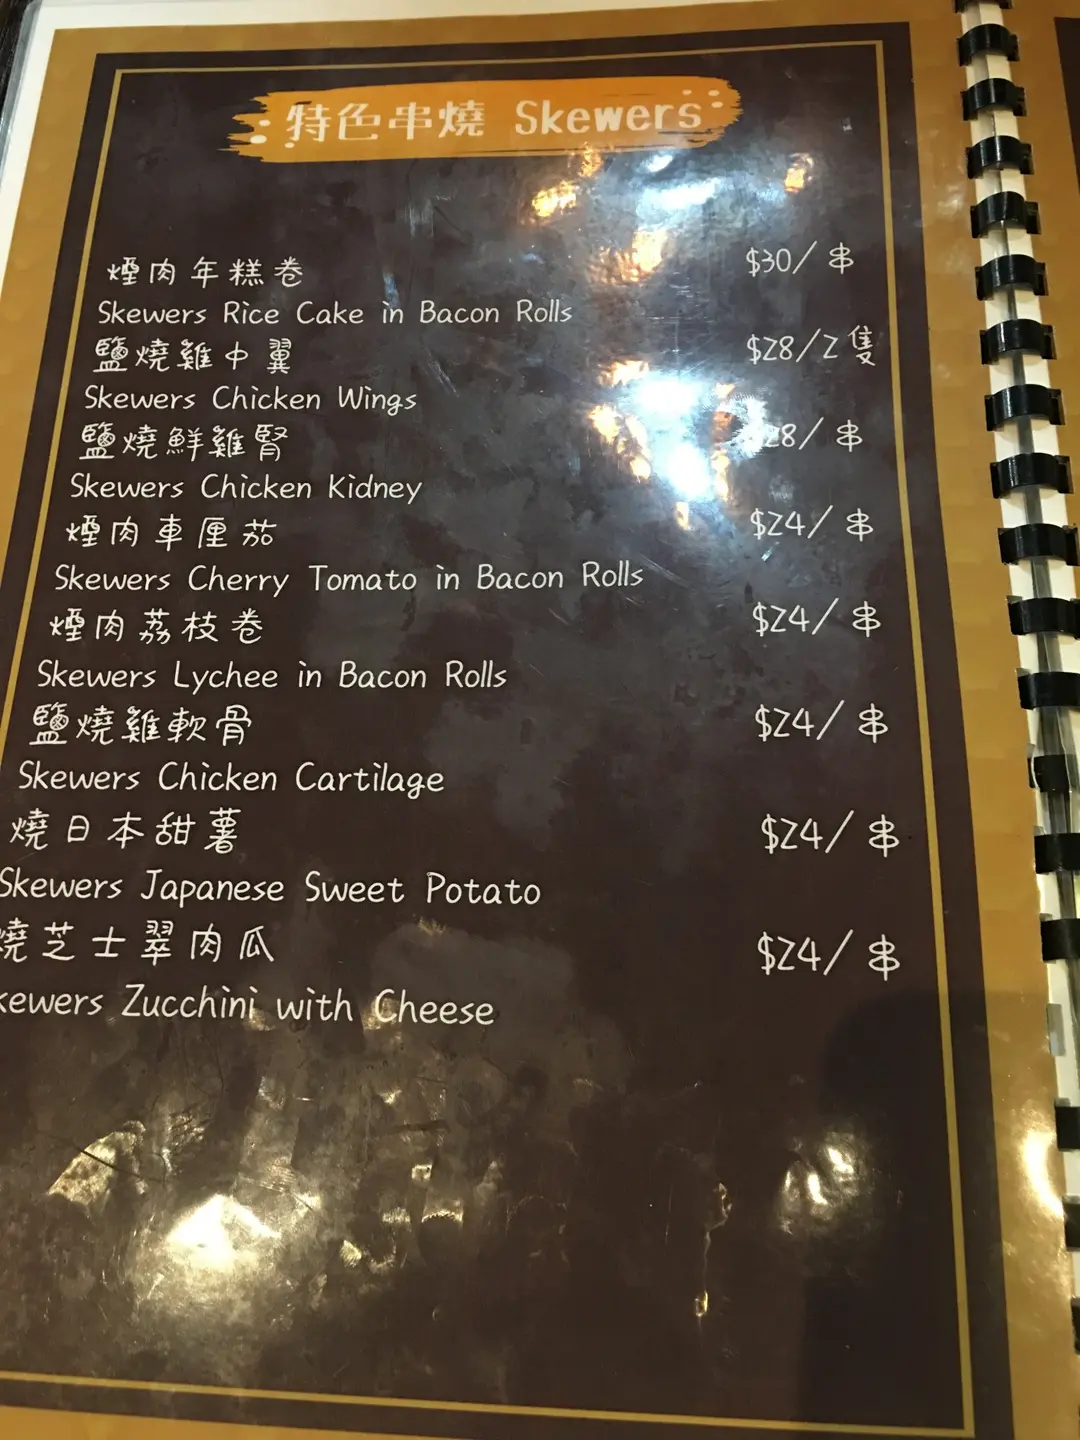 特色串燒 Skewers
煙肉年糕卷 $30/串
Skewers Rice Cake in Bacon Rolls
鹽燒雞中翼 $28/2隻
Skewers Chicken Wings
鹽燒鮮雞腎 $28/串
Skewers Chicken Kidney
煙肉車厘茄 $24/串
Skewers Cherry Tomato in Bacon Rolls
煙肉荔枝卷 $24/串
Skewers Lychee in Bacon Rolls
鹽燒雞軟骨 $24/串
Skewers Chicken Cartilage
燒日本甜薯 $24/串
Skewers Japanese Sweet Potato
燒芝士翠肉瓜 $24/串
kewers Zucchini with Cheese